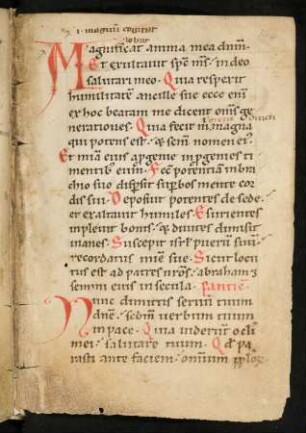 Magnificat anima mea dnm̄.
Et exultauit sp̄s ms̄ · in deo
salutari meo. Quia respexit
humilitatē ancille sue ecce enī
ex hoc beatam me dicent om̄s ge
nerationes. Quia fecit m̄ magna
qui potens est · & scm̄ nomen ei᷒
Et mīa eius a pgenie in pgenies ti
mentib᷒ eum. Fec̄ potentiam in bra
chio suo dispsit supbos mente cor
dis sui. Deposuit potentes de sede ·
et exaltauit humiles. Esurientes
inpleuit bonis · & diuites dimisit
inanes. Suscepit isrl̄ puerū suū ·
recordatus mīe sue. Sicut locu
tus est ad patres nr̄os · abraham &
semini eius in secula.
Nunc dimittis seruū tuum
dn̄e · scdm̄ uerbum tuum
in pace. Quia uiderunt ocl̄i
mei · salutare tuum. Qd̄ pa
rasti ante faciem · omnium pplōr̄